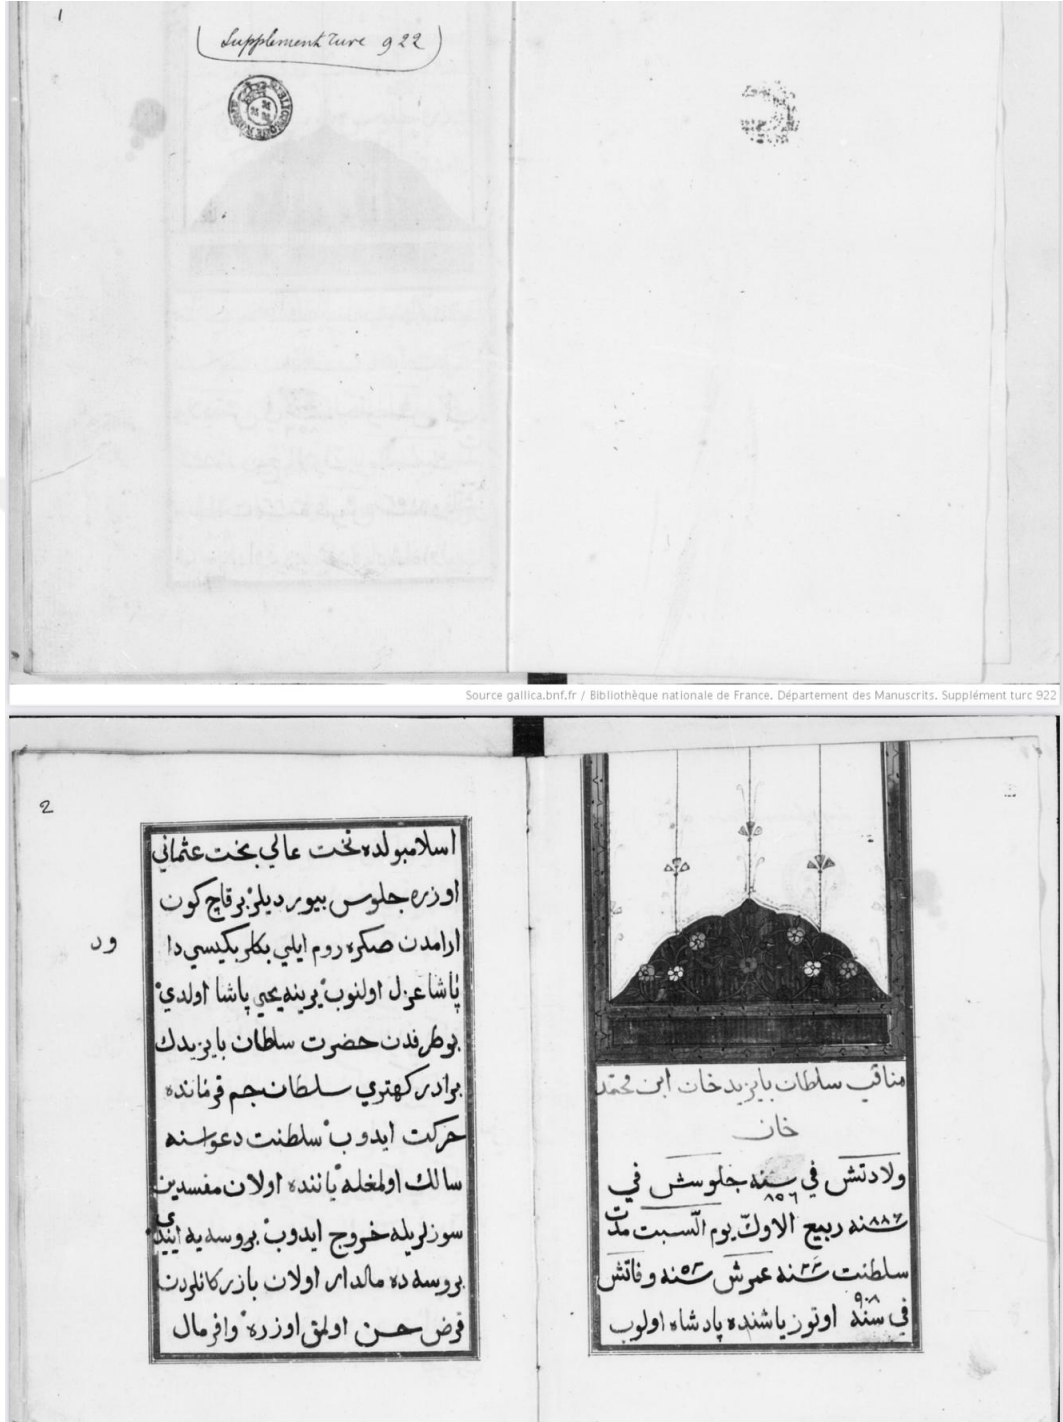 1
Supplement Turc 922
Source gallica.bnf.fr / Bibliothèque nationale de France. Département des Manuscrits. Supplément turc 922
مناقب سلطان بايزيد خان ابن محمّد
خان
ولادتش في سنه ٨٥٦ جلوسش في
سنه ٨٨٦ ربيع الاوّل يوم السّبت مدّت
سلطنت سنه ٣٢ عمرش سنه ٥٢ وفاتش
في سنه ٩٠٨ اوتوز ياشنده پادشاه اولوب
2
اسلامبولده تخت عالي بخت عثماني
اوزره جلوس بيورديلر برقاچ كون
ارامدن صكره روم ايلي بكلربكيسي دا
ود
پاشا عزل اولنوب يرينه يحيي پاشا اولدي
بوطرفدن حضرت سلطان بايزيدك
برادر كهتري سلطان جم قرمانده
حركت ايدوب سلطنت دعواسنه
سالك اولمغله ياننده اولان مفسدين
سوزلريله خروج ايدوب بروسه يه
بروسه ده مالدار اولان بازركانلردن
قرض حسن اولمق اوزره وافر مال